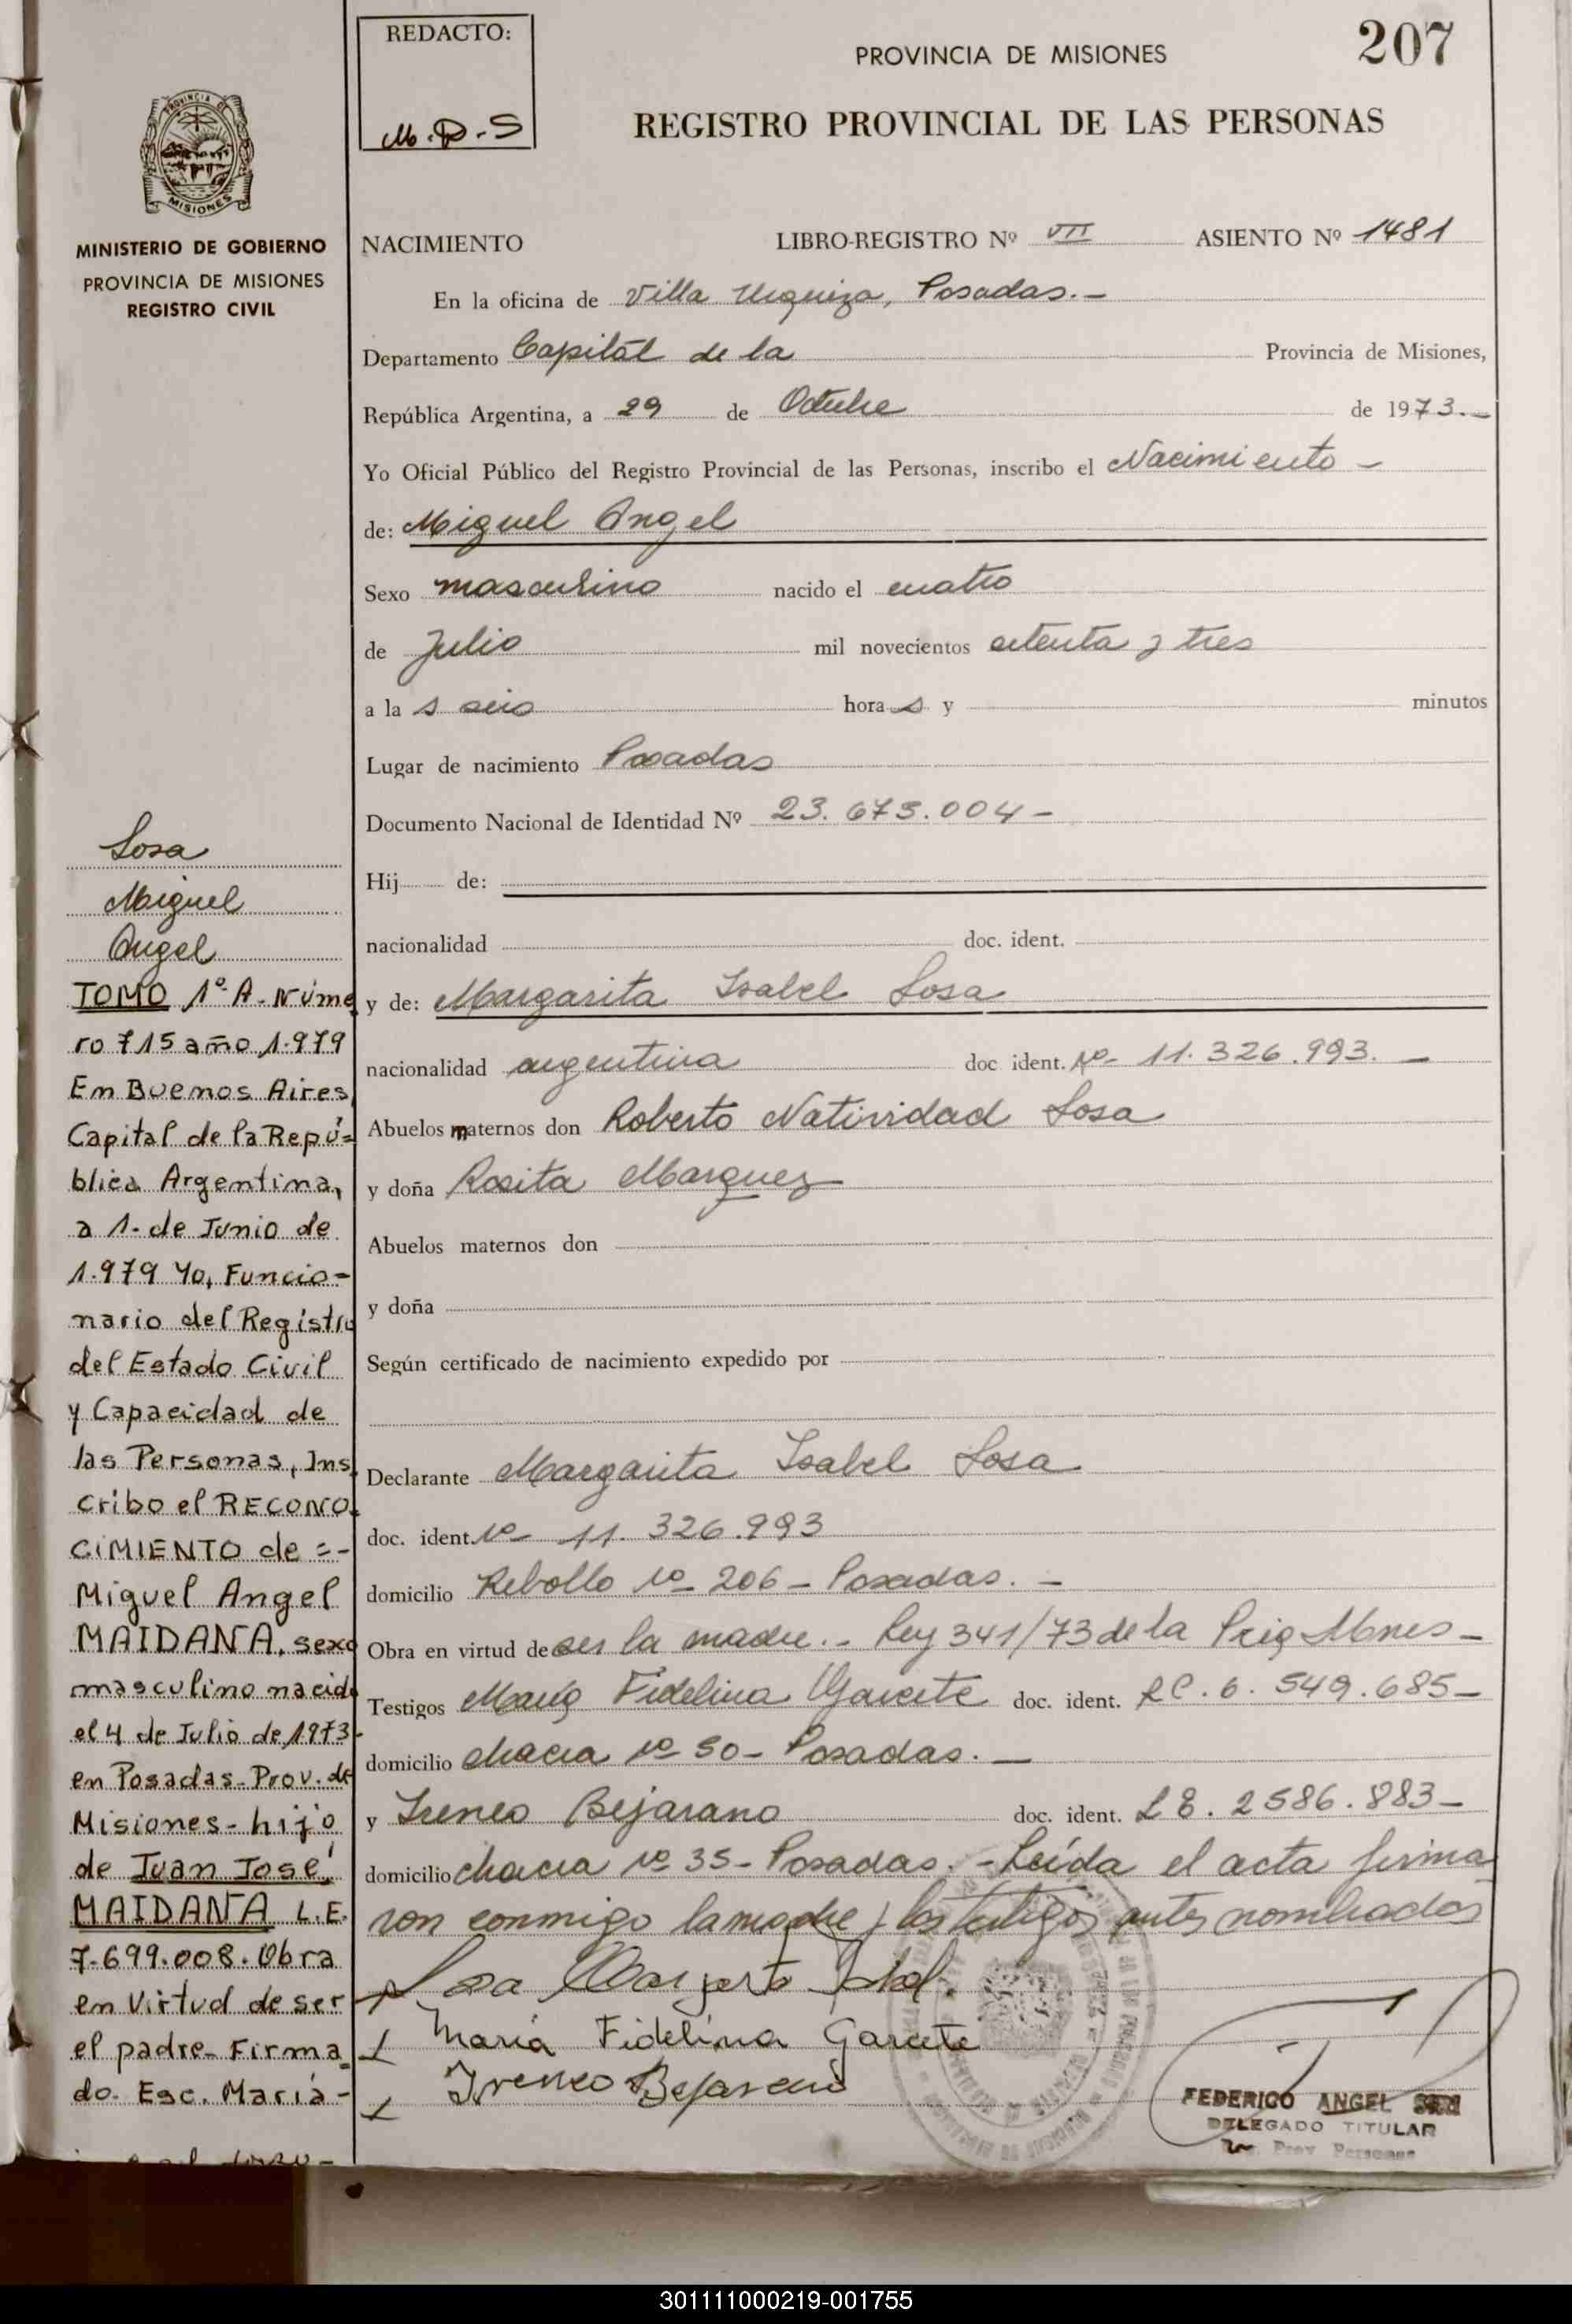 REDACTO:
M.D.S
PROVINCIA DE MISIONES
207
REGISTRO PROVINCIAL DE LAS PERSONAS
PROVINCIA DE
MISIONES
MINISTERIO DE GOBIERNO
PROVINCIA DE MISIONES
REGISTRO CIVIL
NACIMIENTO LIBRO-REGISTRO Nº VII ASIENTO Nº 1481
En la oficina de Villa Urquiza, Posadas.-
Departamento Capital de la Provincia de Misiones,
República Argentina, a 29 de Octubre de 1973.-
Yo Oficial Público del Registro Provincial de las Personas, inscribo el Nacimiento -
de: Miguel Angel
Sexo masculino nacido el cuatro
de Julio mil novecientos setenta y tres
a la s seis hora s y minutos
Lugar de nacimiento Posadas
Documento Nacional de Identidad Nº 23.673.004-
Hij de:
nacionalidad doc. ident.
y de: Margarita Isabel Sosa
nacionalidad argentina doc ident. Nº- 11.326.993.-
Abuelos maternos don Roberto Natividad Sosa
y doña Rosita Marquez
Abuelos maternos don
y doña
Según certificado de nacimiento expedido por
Declarante Margarita Isabel Sosa
doc. ident. Nº- 11.326.993
domicilio Rebollo Nº 206 - Posadas.-
Obra en virtud de ser la madre.- Ley 341/73 de la Mnes-
Testigos María Fidelina Garcete doc. ident. RC.6.549.685-
domicilio chacra Nº 30- Posadas.-
y Ireneo Bejarano doc. ident. L8.2586.883-
domicilio chacra Nº 35- Posadas.-Leída el acta firma
ron conmigo la madre y los testigos antes nombrados
Sosa Margarita Isabel.
María Fidelina Garcete
Ireneo Bejarano
FEDERICO ANGEL
DELEGADO TITULAR
Prov Personas
Sosa
Miguel
Angel
TOMO 1º A-Núme
ro 715 año 1.979
En Buenos Aires,
Capital de la Repú=
blica Argentina,
a 1- de Junio de
1.979 Yo, Funcio-
nario del Registro
del Estado Civil
y Capacidad de
las Personas, Ins
cribo el RECONO
CIMIENTO de =-
Miguel Angel
MAIDANA, sexo
masculino nacido
el 4 de Julio de 1973-
en Posadas-Prov. de
Misiones-hijo
de Juan José
MAIDANA L.E.
7.699.008.Obra
en virtud de ser
el padre-Firma
do. Esc. María-
301111000219-001755